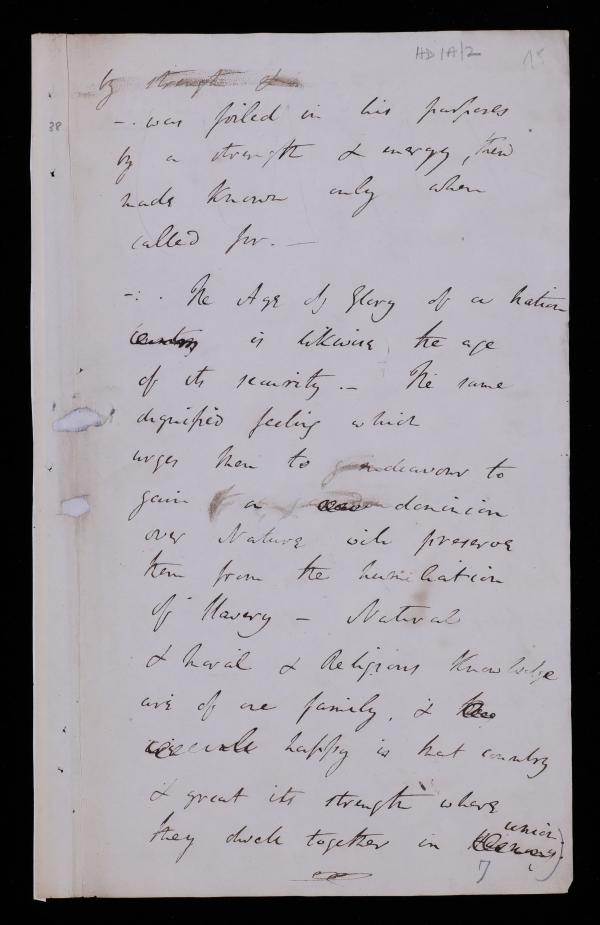 HD/A/2
38
by strength &
-. was foiled in his purposes
by a strength & energy, then
made known only when
called for. —
-: . The Age of Glory of a Nation
country is likewise the age
of its security. — The same
dignified feeling which
urges them to endeavour to
gain a dominion
over Nature will preserve
them from the humiliation
of Slavery — Natural
& Moral & Religious Knowledge
are of one family, &
happy is that country
& great its strength where
which
they dwell together in
7